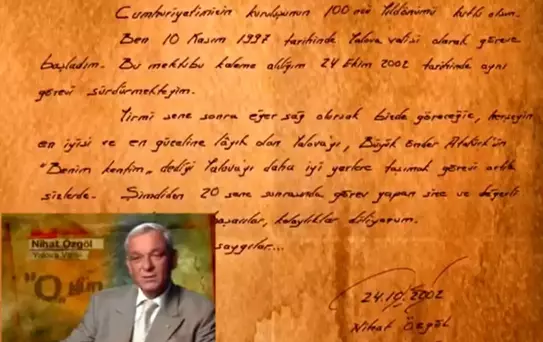 Cumhuriyetimizin kuruluşunun 100 ncü Yıldönümü kutlu olsun.
Ben 10 Kasım 1997 tarihinde Yalova valisi olarak göreve
başladım. Bu mektubu kaleme aldığım 24 Ekim 2002 tarihinde aynı
görevi sürdürmekteyim.
Yirmi sene sonra eğer sağ olursak bizde göreceğiz, herşeyin
en iyisi ve en güzeline lâyık olan Yalova'yı, Büyük Önder Atatürk'ün
"Benim kentim" dediği Yalova'yı daha iyi yerlere taşımak görevi artık
sizlerde. Şimdiden 20 sene sonrasında görev yapan size ve değerli
başarılar, kolaylıklar diliyorum.
saygılar...
24.10.2002
Nihat Özgöl
Nihat Özgöl
Yalova Valisi
"O gün